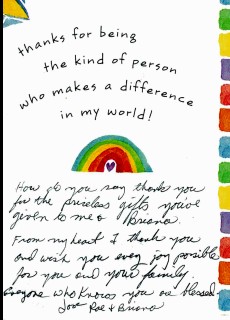 thanks for being
the kind of person
who makes a difference
in my world!
How do you say thank you
for the priceless gifts you've
given to me & Briana.
From my heart I thank you
and wish you every joy possible
for you and your family.
Everyone who knows you are blessed.
Love Rae & Briana